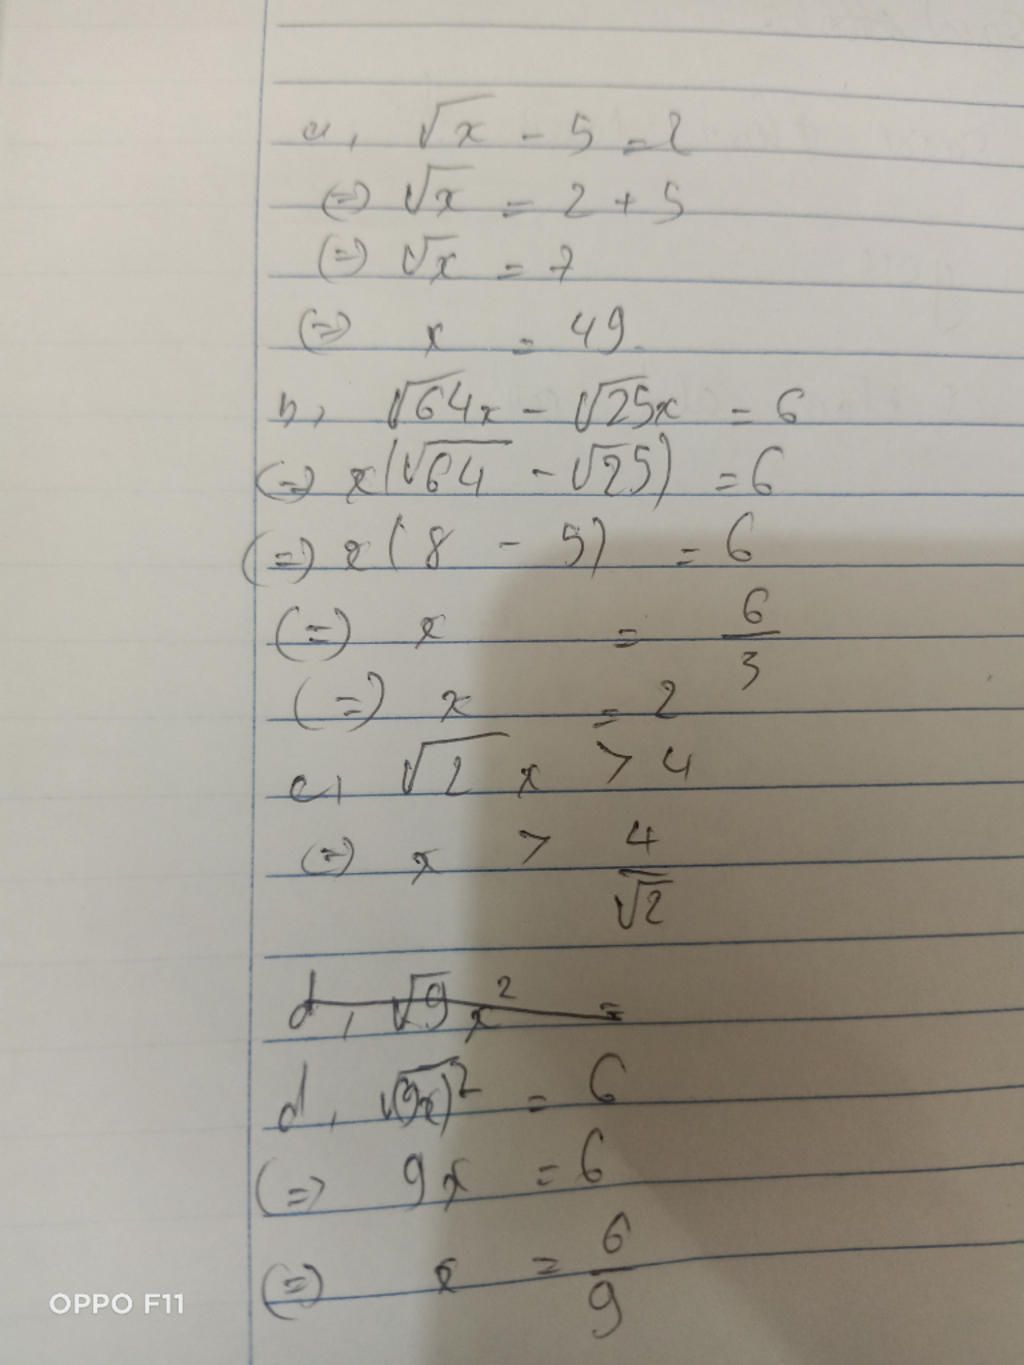 a, √x - 5 = 2
(=) √x = 2 + 5
(=) √x = 7
(=) x = 49.
b, √64x - √25x = 6
(=) x(√64 - √25) = 6
(=) x(8 - 5) = 6
(=) x = 6/3
(=) x = 2
c, √2 x > 4
(=) x > 4/√2
d, √9x² =
d, √(9x)² = 6
(=) 9x = 6
(=) x = 6/9
OPPO F11